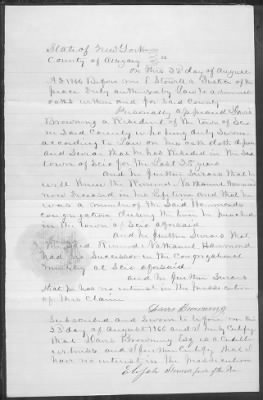 State of New York
County of Allegany } ss
On this 22d day of August
AD 1860 Before me E Stowell a Justice of the
peace duly authorised by Law to administer
oaths within and for Said County
Personally appeared Davis
Browning a Resident of the Town of Scio
in Said County who being duly Sworn
according to Law on his oath doth upon
and Swear that he has Resided in the Said
town of Scio for the Last 35 years
and he further Swears that he
well knew the Revend Nathaniel Hammond
now deceased in his life time and that he
was a minister of the Said Hammonds
congregation during the time he preached
in the Town of Scio aforesaid
and he further Swears that
the Said Revend Nathaniel Hammond
had no Successor in the Congregational
ministry at Scio aforesaid
and he further Swears
that he has no interest in the prosecution
of this Claim
Davis Browning
Subscribed and Sworn to before me this
22d day of August 1860 and I duly Certify
that Davis Browning Esq is a Credible
witness and I further Certify that I
have no interest in the prosecution
Elijah Stowell Just of the Peace